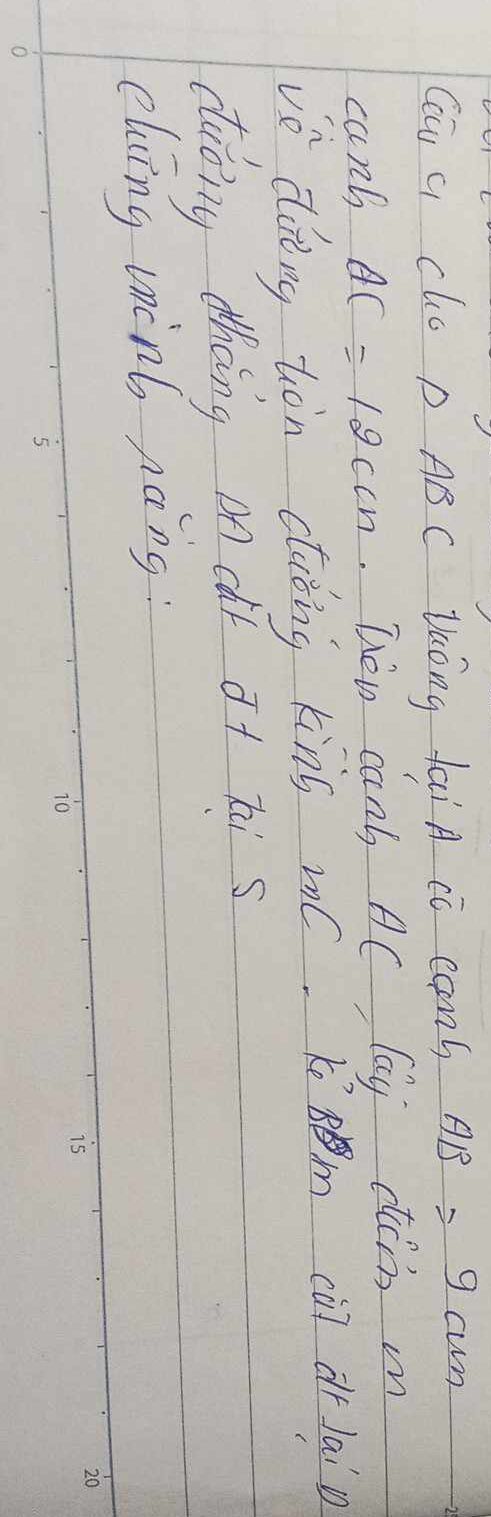 Câu 4 cho Δ ABC vuông tại A có cạnh AB = 9 cm
cạnh AC = 12 cm. Trên cạnh AC, lấy điểm m
vẽ đường tròn đường kính mC. kẻ Bm cắt đt tại D
đường thẳng DA cắt đt tại S
chứng minh rằng:
0
5
10
15
20